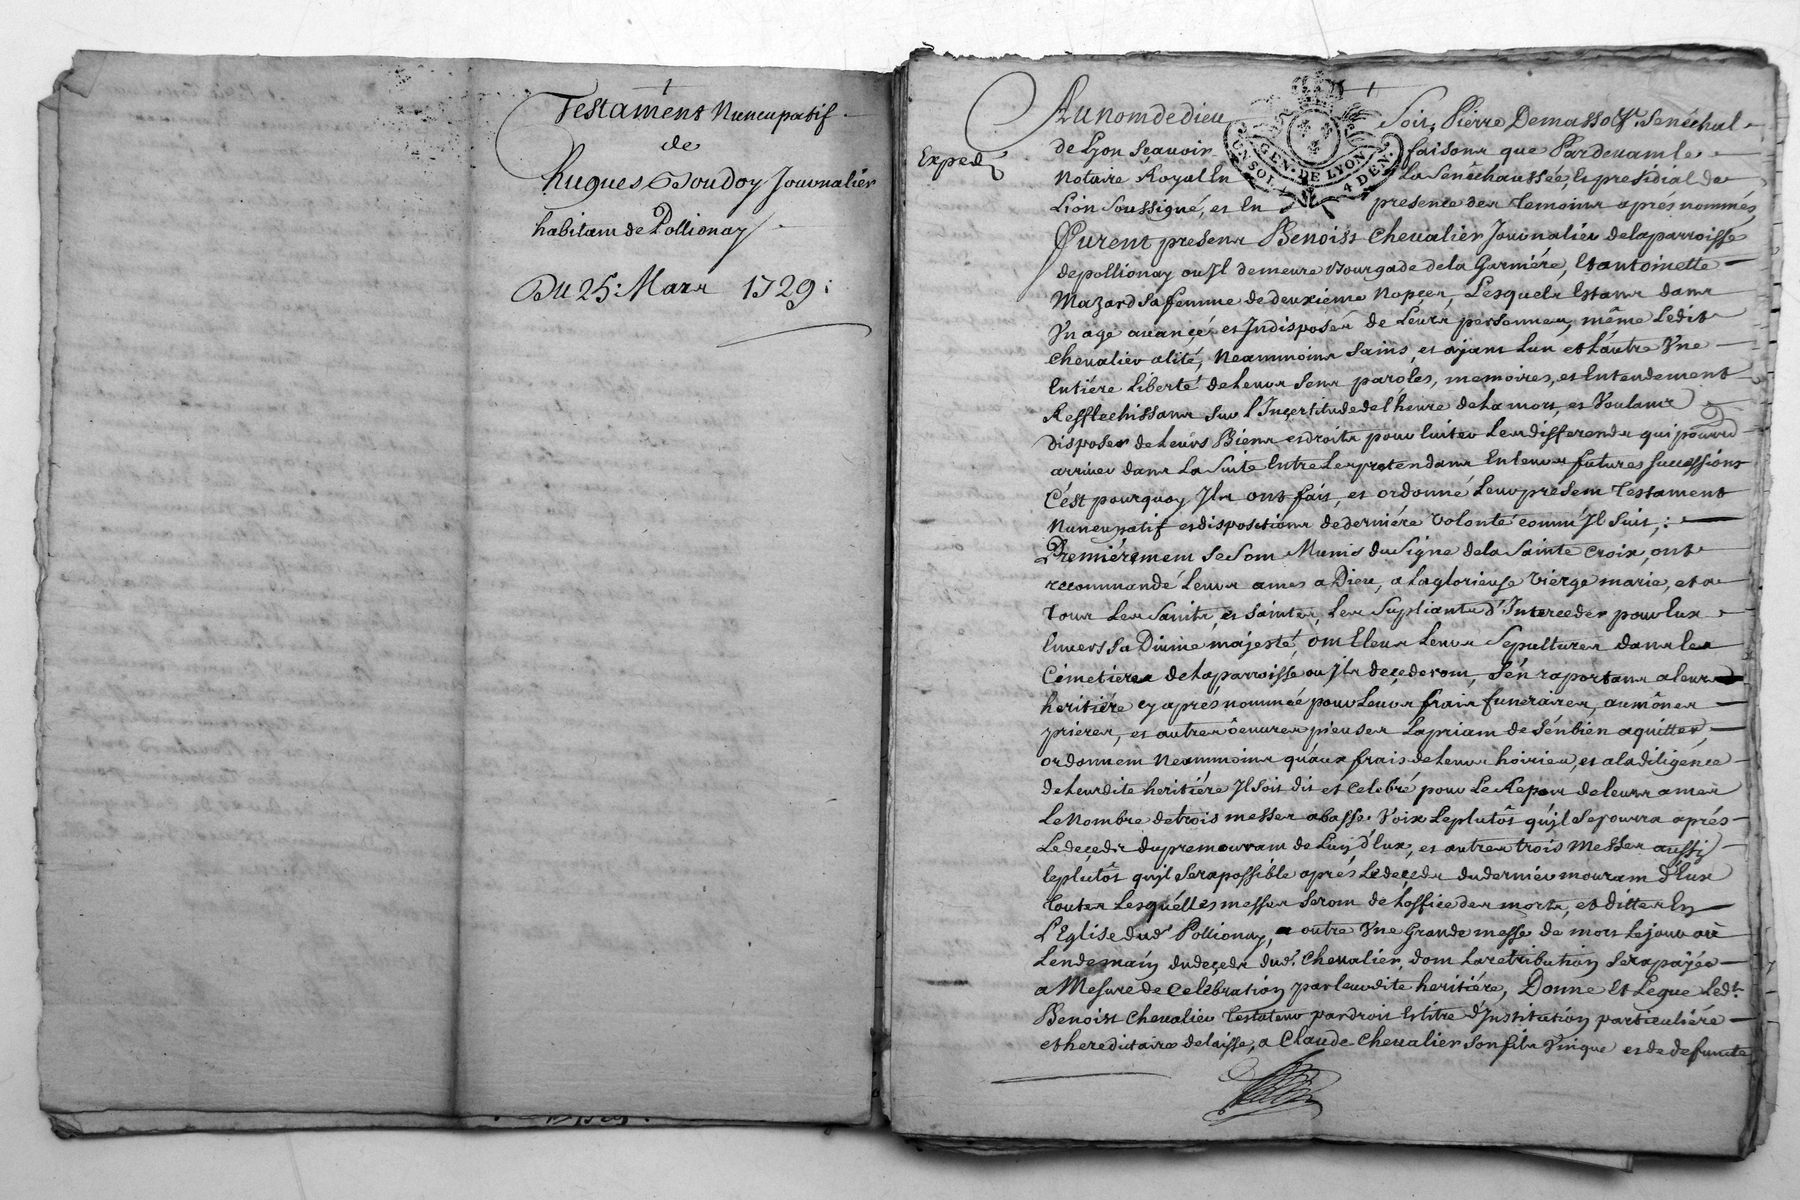 Testament Nuncupatif
de
Hugues Boudoy Journalier
habitant de Pollionay
Du 25: Mars 1729:
Exped
GEN. DE LYON
UN SOL 4 DEN.
Au nom de dieu Soit, Pierre Demasso Sr. Senéchal
de Lyon Scauoir faisons que Pardeuant le
Notaire Royal En La Sénéchaussée, et presidial de
Lion Soussigné, et En presence des temoins aprés nommés
Furent presens Benoist Cheualier Journalier delaparroisse
depollionay ou Jl demeure Bourgade dela Garniére, Et antoinette
Mazard Sa femme de deuxiéme Nopçes, Lesquels Estans dans
Vn age auançé et Jndisposés de Leurs personnes, même Ledit
Cheualier alité, Neammoins Sains, et ayant Lun et Lautre Vne
Entiére Liberté de Leurs Sens paroles, memoires, et Entendement
Refflechissans Sur l'Inçertitude de l'heure de La mort, et Voulans
disposer de Leurs Biens et droits pour Euiter Les differends qui pourrd
arriuer dans La Suite Entre Les pretendans En leurs futures Successions
C'est pourquoy Jls ont fait, et ordonné Leur present Testament
Nuncupatif et dispositions de derniére volonté comm' Jl Suit;
Premiérement Se Sont Munis du Signe de la Sainte Croix, ont
recommandé Leurs ames a Dieu, a La glorieuse Vierge marie, et a
tous Les Saints, et Saintes, Les Supliants d'Interceder pour Eux
Enuers Sa Diuine májesté, ont Eleus Leurs Sepultures dans les
Cimetiéres de La parroisse ou Jls deçederont, S'én raportans a leur
heritiére cy aprés nommée pour Leurs frais funeraires, aumônes
prieres, et autres oeuures pieuses La priant de S'én bien aquitter,
ordonnent Neammoins qu'aux frais de Leurs hoiries, et a la diligence
de Leurdite heritiére Jl Soit dit et Celebré pour Le Repos de leurs ames
Le Nombre de trois messes a basse Voix Leplutôt qu'jl Se pourra aprés
Le deçeds du premourant de L'un d'Eux, et autres trois Messes aussi
leplutôt qu'jl Sera possible aprés Le deceds du derniér mourant d'Eux
toutes Lesquélles messes Seront de L'office des morts, et dittes En
L'Eglise dud. Pollionay, outre Vne Grande messe de mort Le jour où
Lendemain du deçeds dud. Cheualier, dont La retribution Sera payée
a Mesure de Celebration par leurdite heritiére, Donne Et Legue Ledt.
Benoist Cheualier Testateur par droit Et titre d'Institution particuliére
et hereditaire delaisse, a Claude Cheualier Son fils Vnique et de defuncte